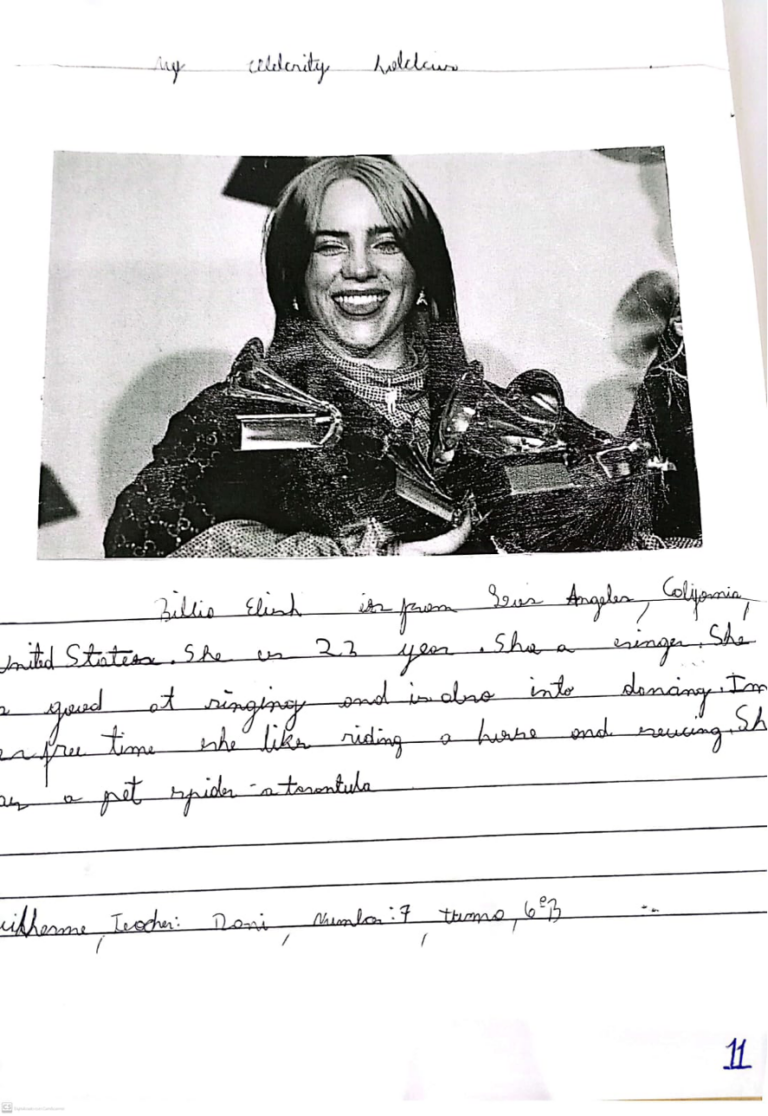 My celebrity
Billie Elish is from Angeles, Colifornia,
United States. She is 23 year. She a singer. She
good at singing and is also into dancing. Im
free time she like riding a horse and Sh
a pet spider - a tarantula
uilherme, Teacher: Dani, Number: 7, turma, 6ºB
11